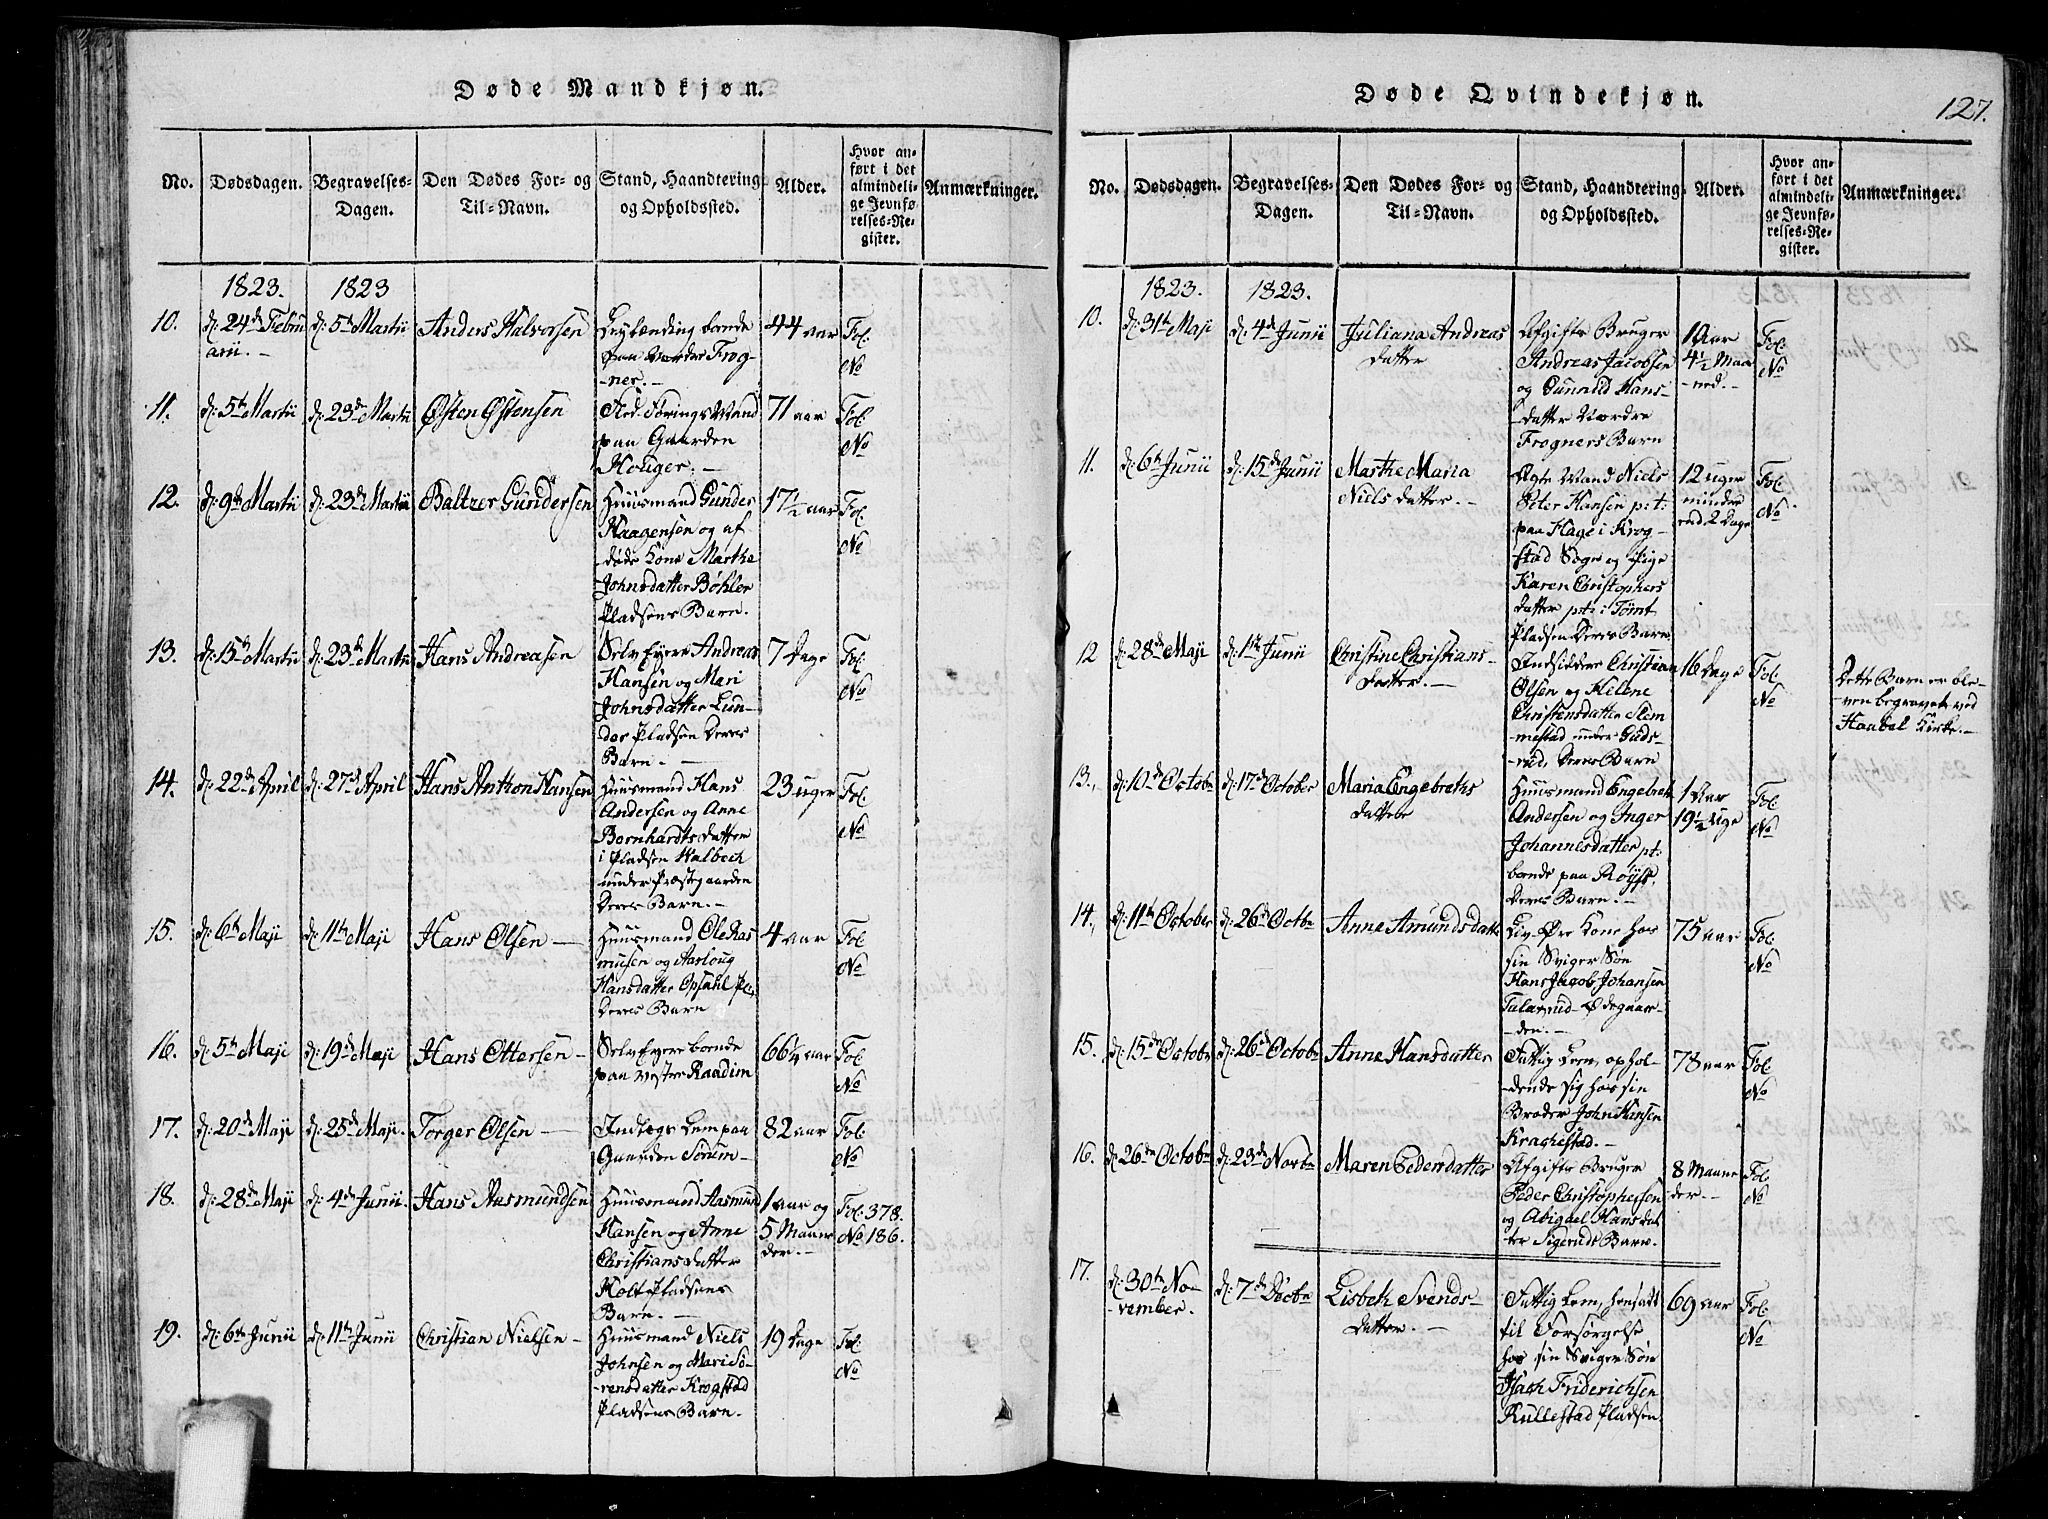 Døde Mandkjøn.
No.
Dødsdagen.
Begravelses-
Dagen.
Den Dødes For- og
Til-Navn.
Stand, Haandtering
og Opholdssted.
Alder.
Hvor an-
ført i det
almindeli-
ge Jevnfø-
relses-Re-
gister.
Anmærkninger.
1823.
1823
10.
d: 24de Febru
arii.-
d: 5te Martii
Anders Halvorsen
Leylending boende
paa Nordre Frog-
-ner.-
44 aar
Fol.
No
11.
d: 5te Martii
d: 23de Martii
Østen Østensen
Fød. Førings Mand
paa Gaarden
Houger.-
71 aar
Fol.
No
12.
d: 9de Martii
d: 23de Martii
Baltzer Gundersen
Huusmand Gunder
Haagensen og af
døde Kone Marthe
Johnsdatter Bøhler
Pladsens Barn.
17½ aar
Fol.
No
13.
d: 15de Martii
d: 23de Martii
Hans Andreasen
Selv Eyere Andreas
Hansen og Mari
Johnsdatter Lun-
der Pladsen Deres
Barn.-
7 Dage
Fol.
No
14.
d: 22de April
d: 27de April
Hans Anthon Hansen
Huusmand Hans
Andersen og Anne
Bernhardts datter
i Pladsen Walbech
under Præstegaarden
Deres Barn.-
23 uger
Fol.
No
15.
d: 6te Maji
d: 11te Maji
Hans Olsen
Huusmand Ole Ras
musen og Aaslaug
Hansdatter Opsahl Pl:
Deres Barn
4 aar
Fol
No
16.
d: 5te Maji
d: 19de Maji
Hans Ottersen-
Selv Eyere boende
paa vester Raadim
66¼ aar
Fol
No
17.
d: 20de Maji
d: 25de Maji.
Torger Olsen
Indlægs Lem paa
Gaarden Sørum-
82 aar
Fol.
No
18.
d: 28de Maji
d: 4de Junii
Hans Aasmundsen
Huusmand Aasmund
Hansen og Anne
Christiansdatter
Holt Pladsens
Barn.-
1 aar og
5 Maane
der.-
Fol. 378.
No 186.
19.
d: 6te Junii
d: 11te Junii
Christian Nielsen-
Huusmand Niels
Johnsen og Mari Sø-
-rensdatter Krogstad
Pladsens Barn.
19 Dage
Fol.
No
Døde Qvindekjøn.
127.
No.
Dødsdagen.
Begravelses-
Dagen.
Den Dødes For- og
Til-Navn.
Stand, Haandtering
og Opholdssted.
Alder.
Hvor an-
ført i det
almindeli-
ge Jevnfø-
relses-Re-
gister.
Anmærkninger.
1823.
1823.
10.
d: 31te Maji
d: 4de Junii
Juliana Andreas
datter
Afgifts Bruger
Andreas Jacobsen
og Gunnild Hans-
datter Nordre
Frogners Barn
1 Aar
4½ Maa
-ned.-
Fol
No
11.
d: 6te Junii
d: 15de Junii
Marthe Maria
Niels datter.-
Ægte Mand Niels
Peter Hansen p:t:
paa Hage i Krog-
stad Sogn og Pige
Karen Christophers
datter p:t: i Tømt
Pladsen Deres Barn
12 uger
mindre
end 2 Dage
Fol.
No
12
d: 28de Maji
d: 1te Junii
Christine Christians-
datter.-
Indsiddere Christian
Olsen og Helene
Christensdatter Slem
mestad under Guds-
rud. Deres Barn
16 Dage
Fol.
No
Dette Barn er ble-
ven begravet ved
Haabel Kirke.-
13.
d: 10de Octobr
d: 17de October
Maria Engebreths
datter
Huusmand Engebreth
Andersen og Inger
Johannesdatter pt:
boende paa Røys.
Deres Barn.-
1 Aar
19½ Uge
Fol.
No
14.
d: 11te October
d: 26de Octbr
Anne Amunds datter
Liv-Øre Kone hos
sin Sviger Søn
Hans Jacob Johansen
Talarud Ødegaar-
-den.-
75 aar
Fol
No
15.
d: 15de Octobr
d: 26de Octobr
Anne Hansdatter
Fattig Lem, ophol-
dende sig hos sin
Broder John Hansen
Kraghestad.-
78 aar
Fol.
No
16.
d: 26de Octobr
d: 23de Novbr
Maren Pedersdatter
Afgifts Bruger
Peder Christophersen
og Abigael Hans dat
ter Sigeruds Barn.
8 Maane
der.-
Fol.
No
17.
d: 30te No-
-vember.
d: 7de Decbr
Lisbeth Svends-
datter.-
Fattig Lem, hensadt
til Forsørgelse
hos sin Sviger Søn
Isach Friderichsen
Kullestad Pladsen
69 aar
Fol.
No